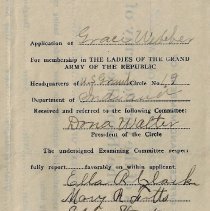 Application of Grace Webber
For membership in THE LADIES OF THE GRAND
ARMY OF THE REPUBLIC
Headquarters of U.S. Grant Circle No. 9
Department of Indiana
Received and referred to the following Committee:
Dona Walter
President of the Circle
The undersigned Examining Committee respect-
fully report favorably on within applicant.
Ella R. Clark
Mary R.